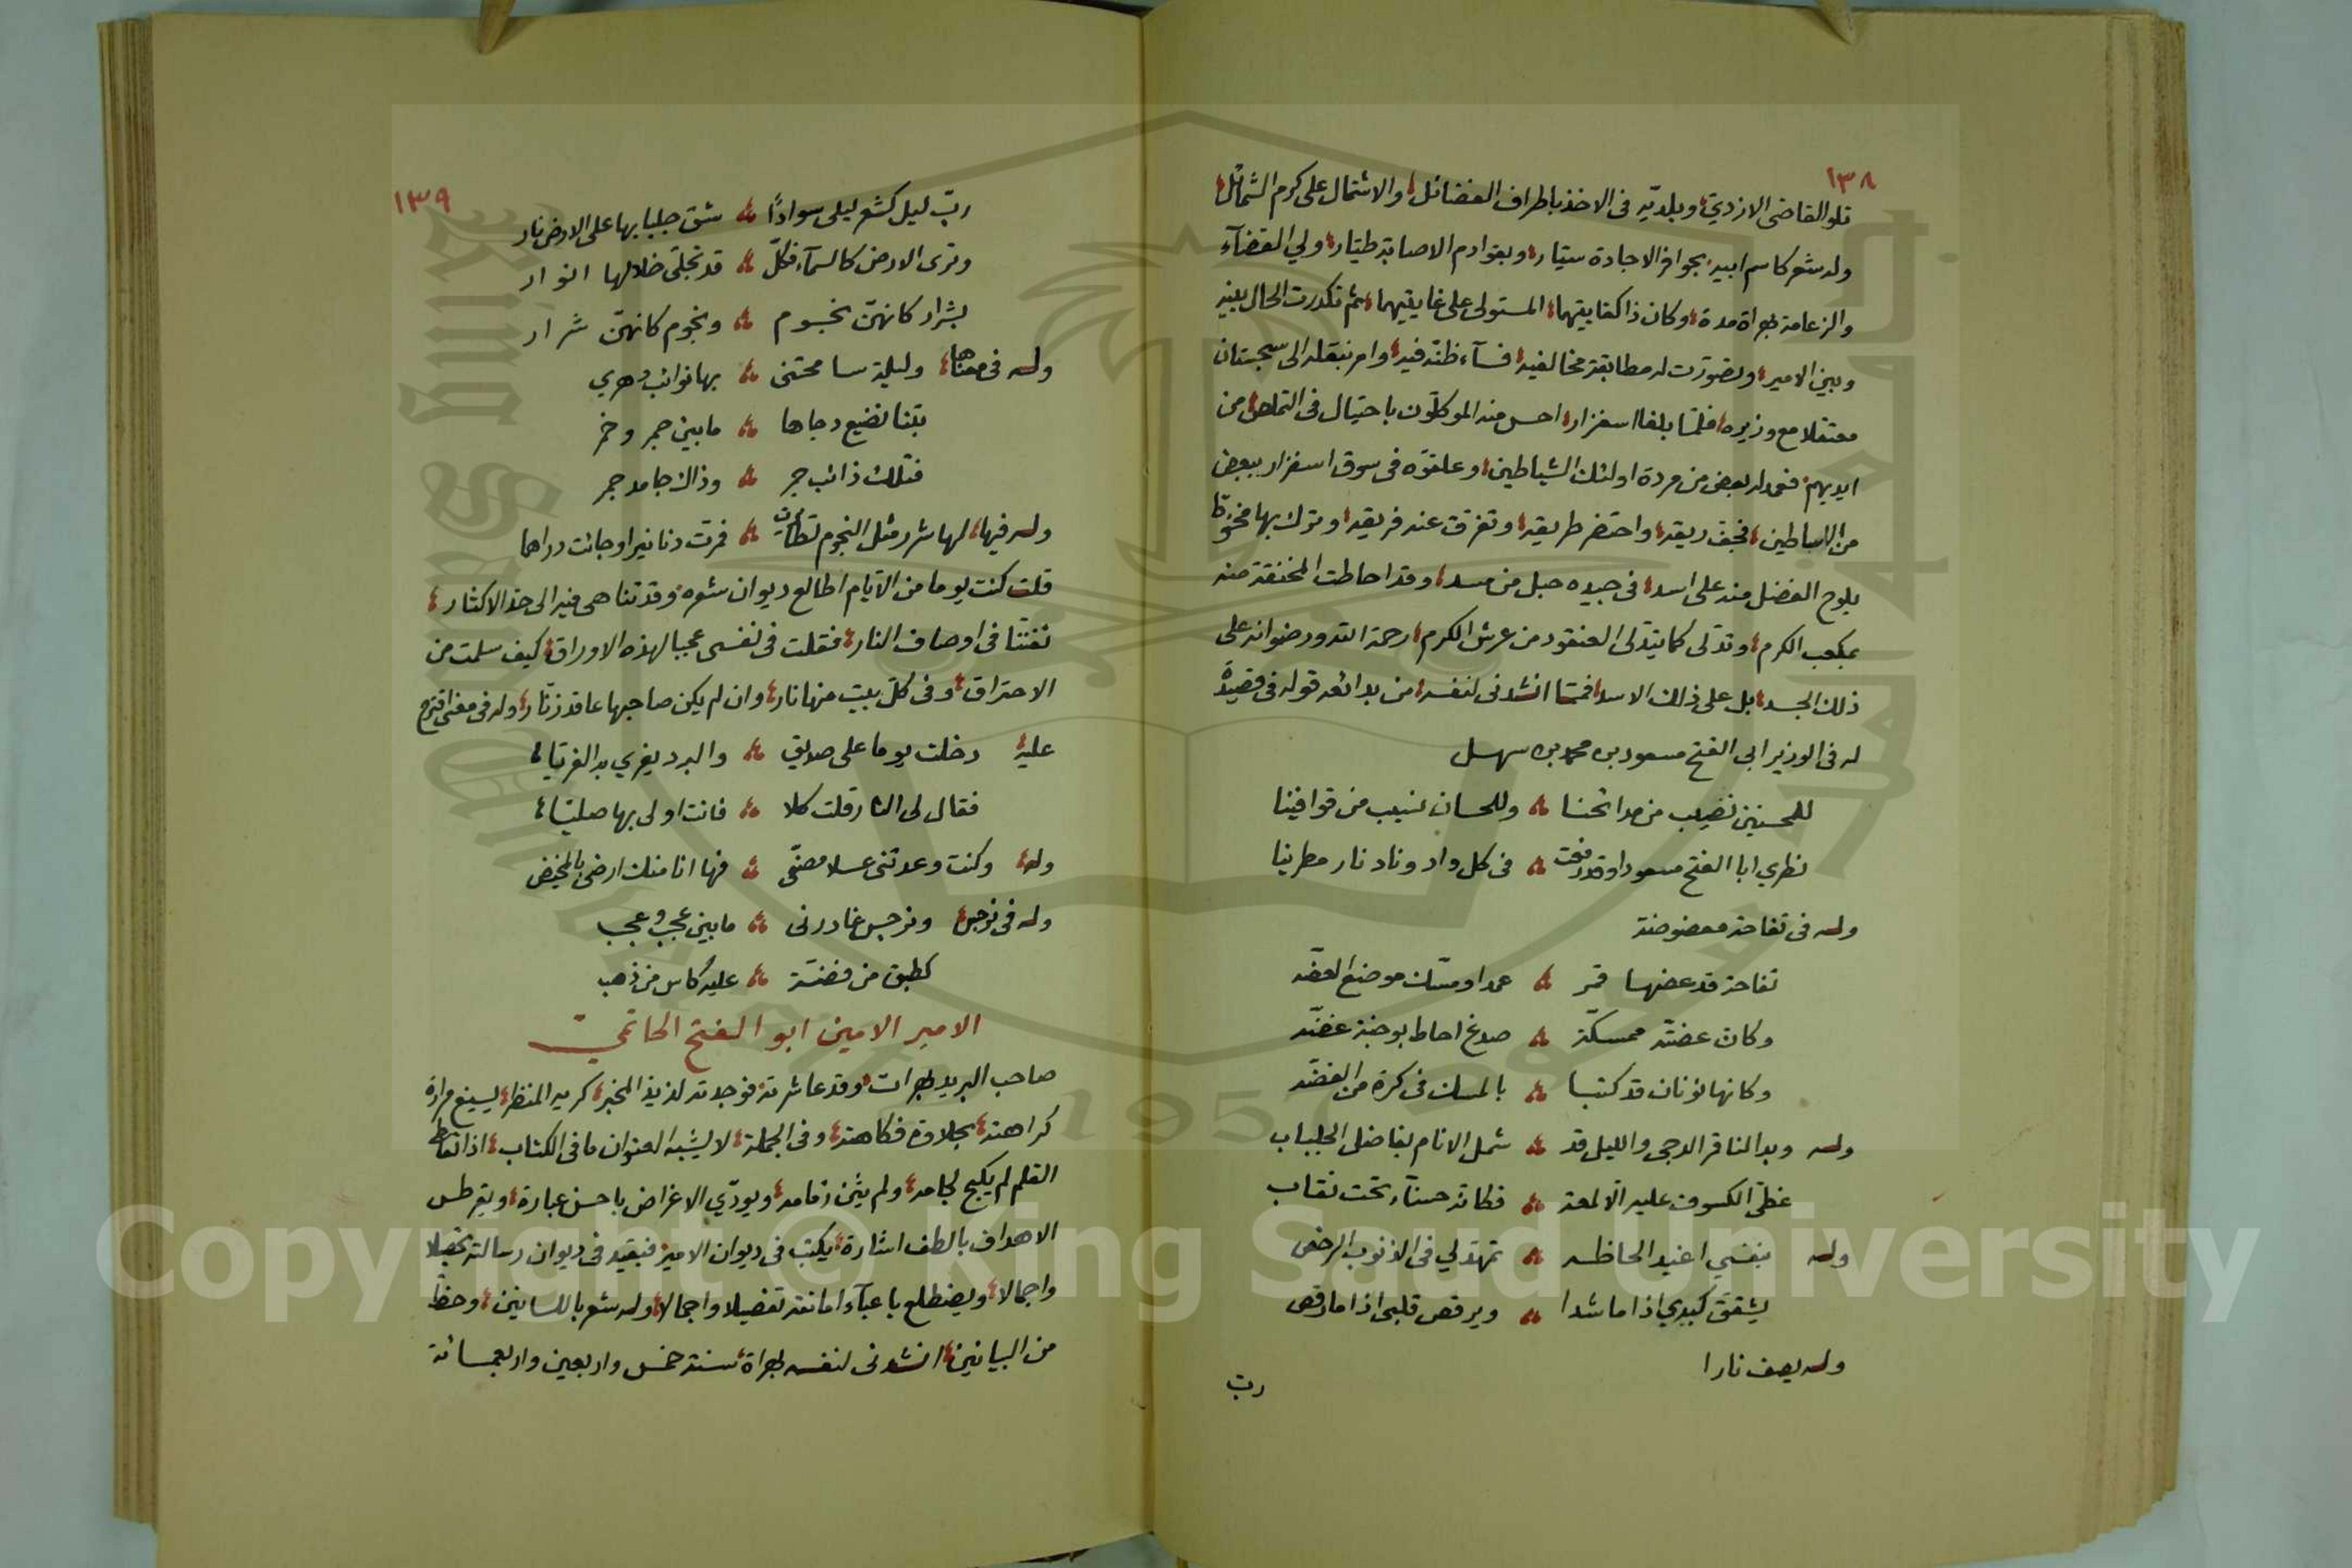 ١٣٨
تلو القاضى الازديّ، وبلديّه فى الاخذ باطراف الفضائل، والاشتمال على كرم الشمائل،
وله شعر كاسم ابيه، بجوافر الاجادة سيّار، وبقوادم الاصابة طيّار، ولي القضآء
والزعامة بهراة مدة، وكان ذا كفايتهما، المستولى على غايتيهما، ثم تكدرت الحال بينه
وبين الامير، وتصوّرت له مطابقة مخالفيه، فسآء ظنّه فيه، وامر بنقله الى سجستان
معتقلا مع وزيره، فلمّا بلغا اسفزار، احس منه الموكلّون باحتيال فى التملص من
ايديهم، فعمد له بعض من مردة اولئك الشياطين، وعلقوّه فى سوق اسفزار ببعض
من الاساطين، فجف ريقه، واحتضر طريقه، وتفرق عنه فريقه، وترك بها
يلوح الفضل منه على اسد، فى جيده حبل من مسد، وقد احاطت المخنقة منه
بكعب الكرم، وتدّلى كما يتدّلى العنقود من عرش الكرم، رحمة الله ورضوانه على
ذلك الجسد، بل على ذلك الاسد، فممّا انشدنى لنفسه، من بدائعه قوله فى قصيدة
له فى الوزير ابى الفتح مسعود بن محمد بن سهل
للمحسنين نصيب من مدائحنا ؞ وللحسان نسيب من قوافينا
نطري ابا الفتح مسعودا وقد رفعت ؞ فى كل واد وناد نار مطرينا
وله فى تفاحة معضوضة
تفاحة قد عضها قمر ؞ عمدا ومسّك موضع العضّه
وكان عضتّه ممسكّة ؞ صدغ احاط بوجنة غضّه
وكانها نونان قد كتبا ؞ بالمسك فى كرة من الفضّه
وله وبدا لنا قمر الدجى والليل قد ؞ شمل الانام بفاضل الجلباب
غطّى الكسوف عليه الّا لمعة ؞ فكانّه حسنآء تحت نقاب
وله بنفسي اغيد الحاظه ؞ تمهّد لي فى الذنوب الرخص
يشقق كبدي اذا ما شدا ؞ ويرقص قلبى اذا ما رقص
وله يصف نارا
ربّ
١٣٩
ربّ ليل كشعر ليلى سوادًا ؞ شق جلبابها على الارض نار
وترى الارض كالسمآء فكلّ ؞ قد تجلّى خلالها انوار
بشرار كانهنّ نجوم ؞ ونجوم كانهنّ شرار
وله فى معناها، وليلة سامحتنى ؞ بها نوائب دهري
بتنا نضيع دجاها ؞ ما بين جمر وخمر
فتلك ذائب جمر ؞ وذاك جامد جمر
وله فيها، لها شرر مثل النجوم تطايرت ؞ فمرت دنانيرا وجائت دراهما
قلت كنت يوما من الايّام اطالع ديوان شعره، وقد تناهى فيه الى حد الاكثار،
تفننّا فى اوصاف النار، فقلت فى نفسى عجبا لهذه الاوراق، كيف سلمت من
الاحتراق، وفى كلّ بيت منها نار، وان لم يكن صاحبها عاقد زنّار، وله فى معنى اقترح
عليه، دخلت يوما على صديق ؞ والبرد يفري به الفريّا،
فقال لى النار قلت كلا ؞ فانت اولى بها صليّا،
وله، وكنت وعدتنى عسلا مصفّى ؞ فها انا منك ارضى بالمخيض
وله فى نرجس، ونرجس غادرنى ؞ ما بين عجب وعجب
كطبق من فضّة ؞ عليه كاس من ذهب
الامير الامين ابو الفتح الحاتمي
صاحب البريد بهرات، وقد عاشرته، فوجدته لذيذ المخبر، كريه المنظر، يسيغ مرارة
كراهته، بحلاوة فكاهته، وفى الجملة، لا يشبه العنوان ما فى الكتاب، اذا تعاطى
القلم لم يكبح لجامه، ولم يثن زمامه، ويودّي الاغراض باحسن عبارة، ويقرطس
الاهداف بالطف اشارة، يكتب فى ديوان الامير، فيفيد فى ديوان رسالته تجملا
واجمالا، ويضطلع باعبآء امانته تفصيلا واجمالا، وله شعر باللسانين، وحظّ
من البيانين، انشدنى لنفسه بهراة، سنة خمس واربعين واربعمائة
Copyright © King Saud University
1957